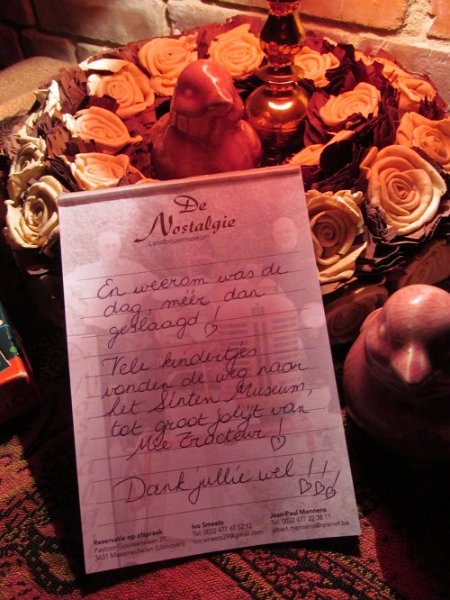 De
Nostalgie
Landbouwmuseum
En weerom was de
dag, méér dan
geslaagd!
Vele kindertjes
vonden de weg naar
het Sinten Museum,
tot groot jolijt van
Mee Tracteur!
Dank jullie wel!!
Reservatie op afspraak
Pastoor Goossenslaan 29,
3631 Maasmechelen (Uikhoven)
Ivo Smeets
Tel. 0032 477 67 52 12
Jean-Paul Mennens
Tel. 0032 477 22 38 11
albert.mennens@telenet.be